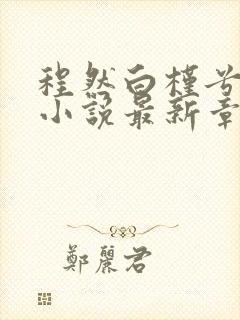 程然白槿兮
小说最新章
鄭麗君